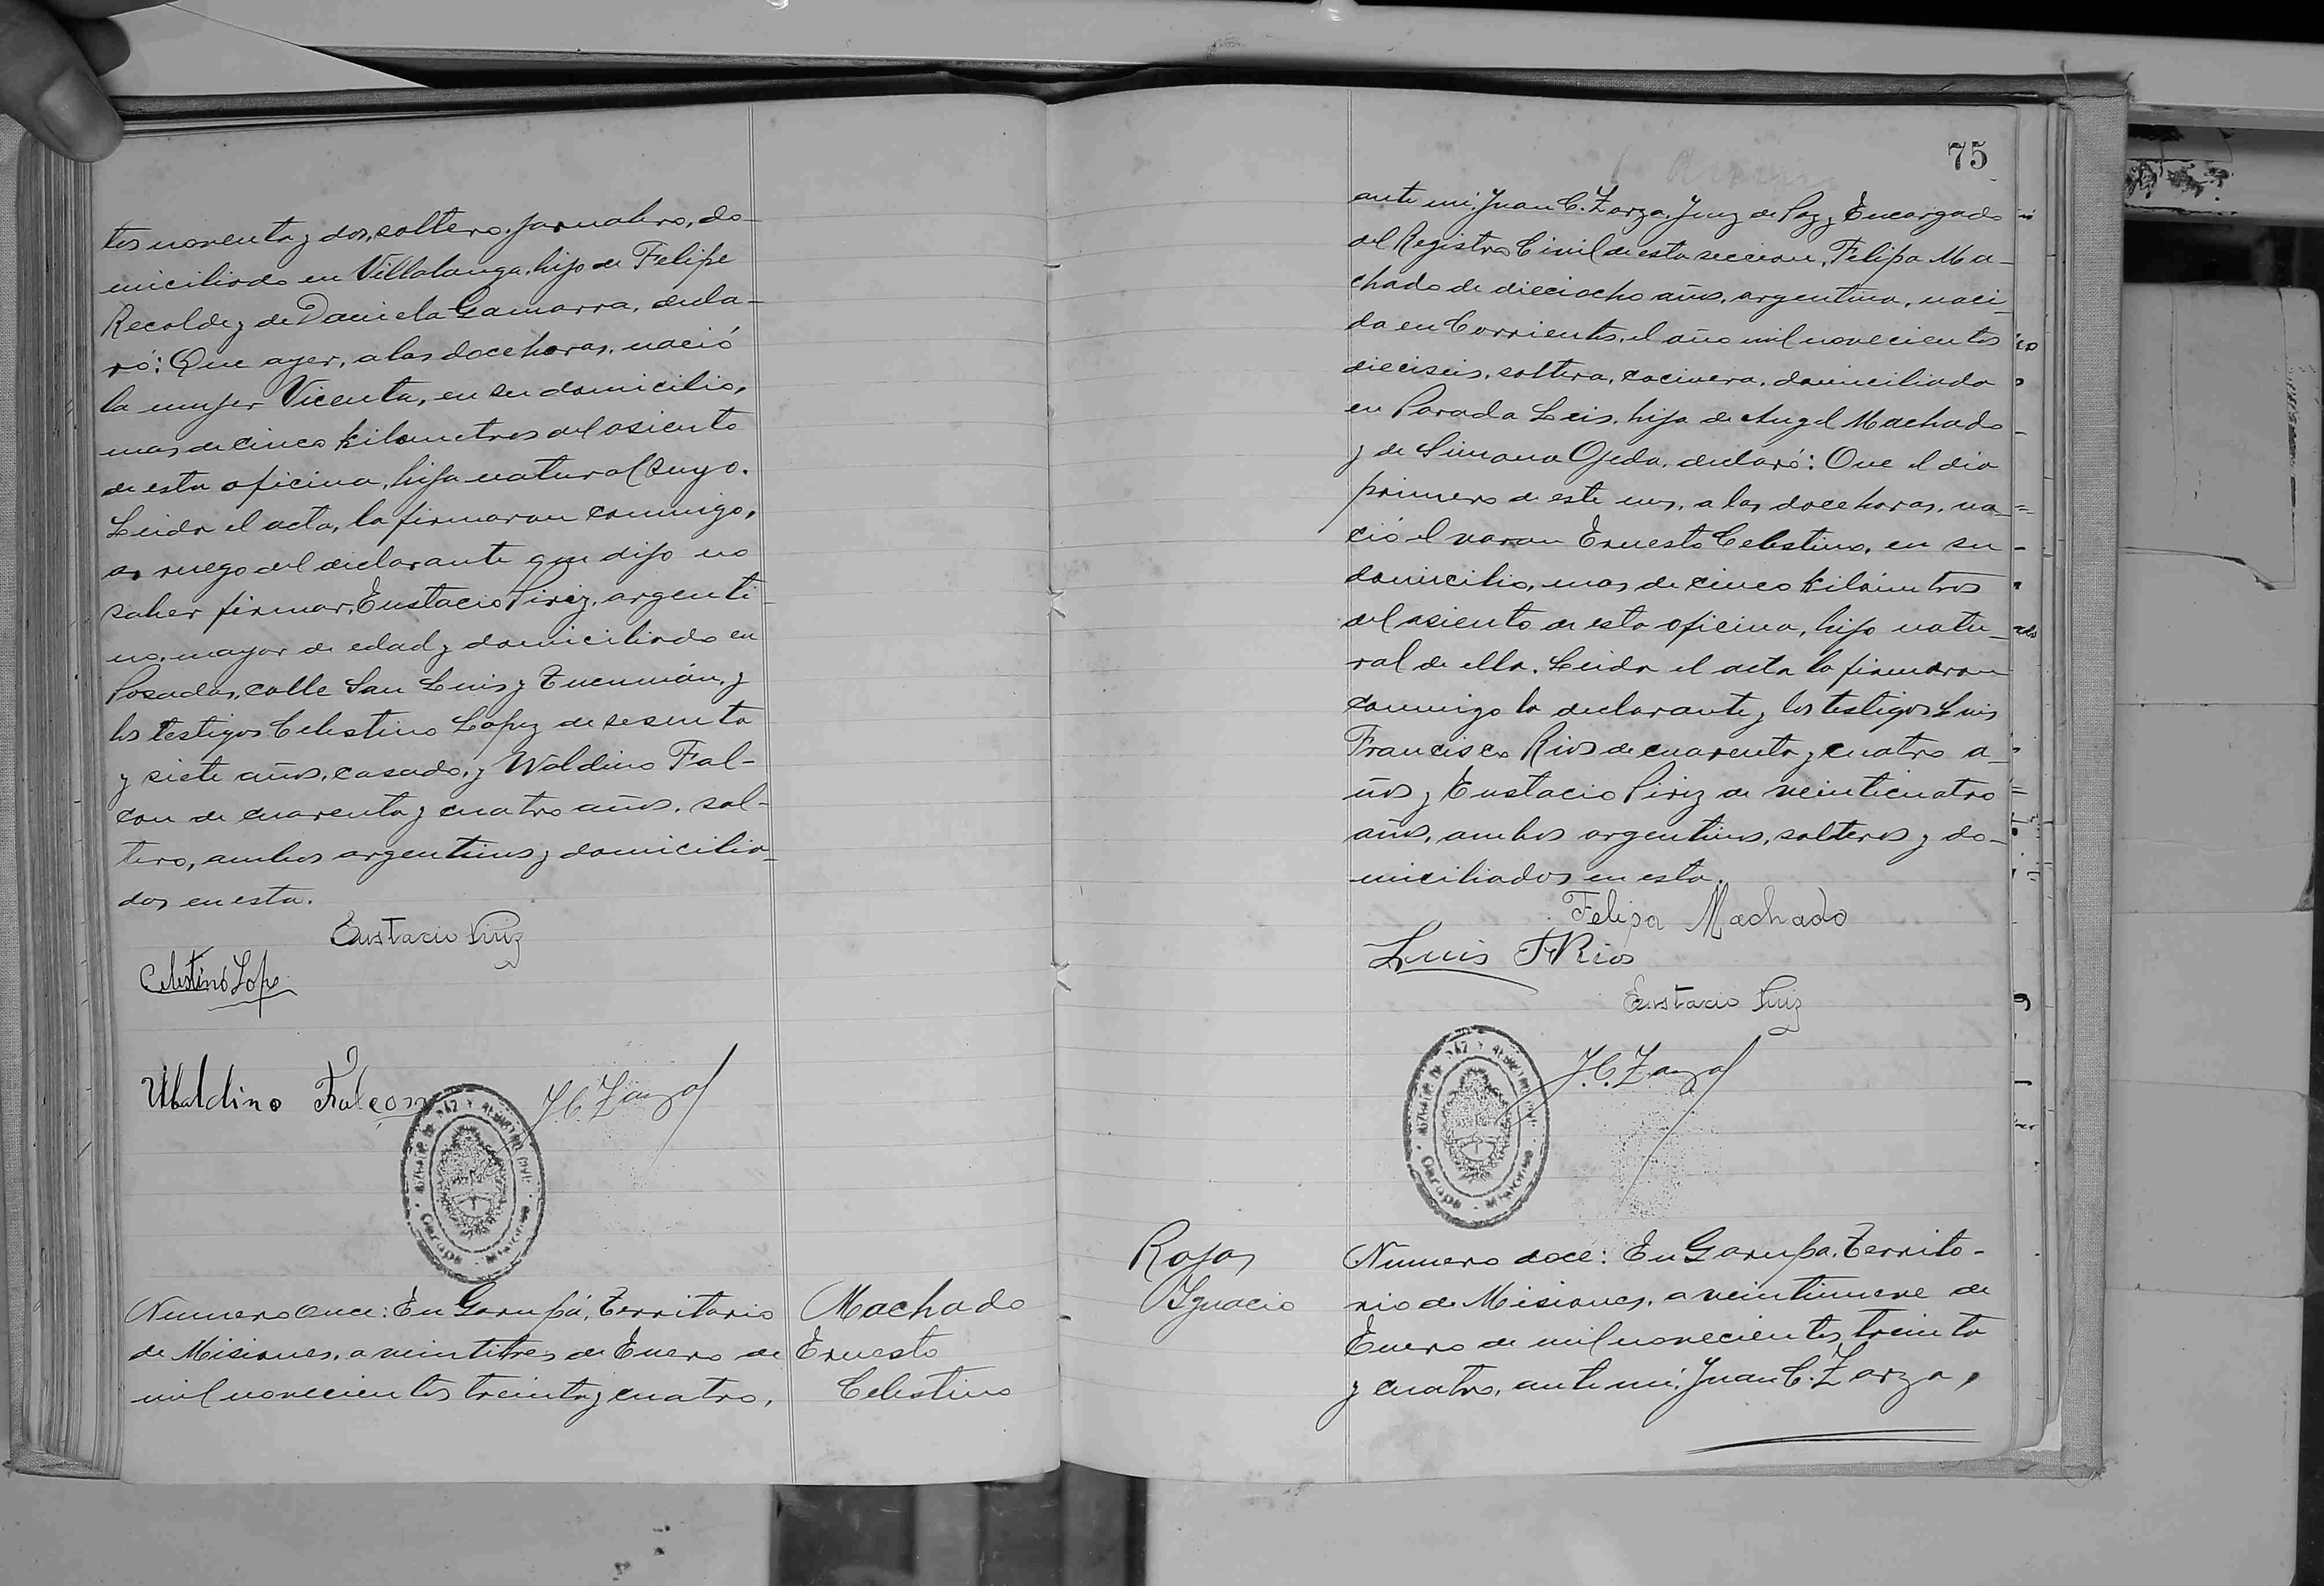 tos noventa y dos, soltero, jornalero, do-
miciliado en Villalonga, hijo de Felipe
Recalde y de Daniela Gamarra, decla-
ró: Que ayer, a las doce horas, nació
la mujer Vicenta, en su domicilio,
mas de cinco kilometros del asiento
de esta oficina, hija natural suya.
Leida el acta, la firmaron conmigo,
a ruego del declarante que dijo no
saber firmar, Eustacio Piriz, argenti-
no, mayor de edad y domiciliado en
Posadas, calle San Luis y Tucumán, y
los testigos Celestino Lopez de sesenta
y siete años, casado, y Waldino Fal-
con de cuarenta y cuatro años, sol-
tero, ambos argentinos y domicilia-
dos en esta.
Eustacio Piriz
Celestino Lope
Ubaldino Falcon
J. C. Zarza
JUZGADO DE PAZ Y REGISTRO CIVIL
Garupá - Misiones
Numero once: En Garupá, Territorio
de Misiones, a veintitres de Enero de
mil novecientos treinta y cuatro,
Machado
Ernesto
Celestino
75
ante mi, Juan C. Zarza, Juez de Paz y Encargado
del Registro Civil de esta seccion, Felipa Ma-
chado de dieciocho años, argentina, naci-
da en Corrientes, el año mil novecientos
dieciseis, soltera, cocinera, domiciliada
en Parada Leis, hija de Angel Machado
y de Simona Ojeda, declaró: Que el dia
primero de este mes, a las doce horas, na-
ció el varon Ernesto Celestino, en su
domicilio, mas de cinco kilómetros
del asiento de esta oficina, hijo natu-
ral de ella. Leida el acta la firmaron
conmigo la declarante y los testigos Luis
Francisco Rios de cuarenta y cuatro a-
ños y Eustacio Piriz de veinticuatro
años, ambos argentinos, solteros y do-
miciliados en esta.
Felipa Machado
Luis F Rios
Eustacio Piriz
J. C. Zarza
JUZGADO DE PAZ Y REGISTRO CIVIL
Garupá - Misiones
Rojas
Ignacio
Numero doce: En Garupa, Territo-
rio de Misiones, a veintinueve de
Enero de mil novecientos treinta
y cuatro, ante mi, Juan C. Zarza,